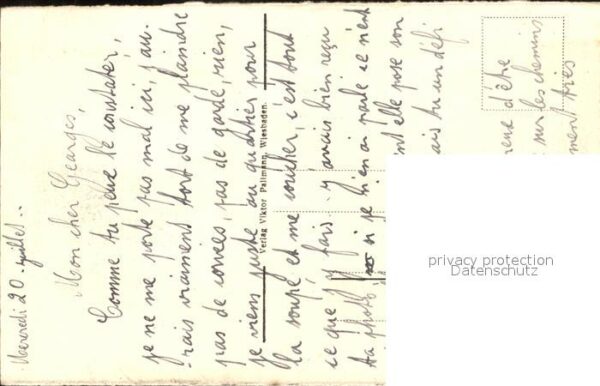 Mercredi 20 juillet..
Mon cher Georges,
Comme tu peux le constater,
je ne me porte pas mal ici, j'au-
rais vraiment tort de me plaindre
pas de corvées, pas de garde, rien,
je viens juste au quartier pour
la soupe et me coucher, c'est tout
ce que j'y fais. J'avais bien reçu
ta photo si je n'en ai parlé ce n'est
ent elle pose son
ais tu un défi
rene d'être
sur les chemins
ment très
Verlag Viktor Pallmann, Wiesbaden.
privacy protection
Datenschutz